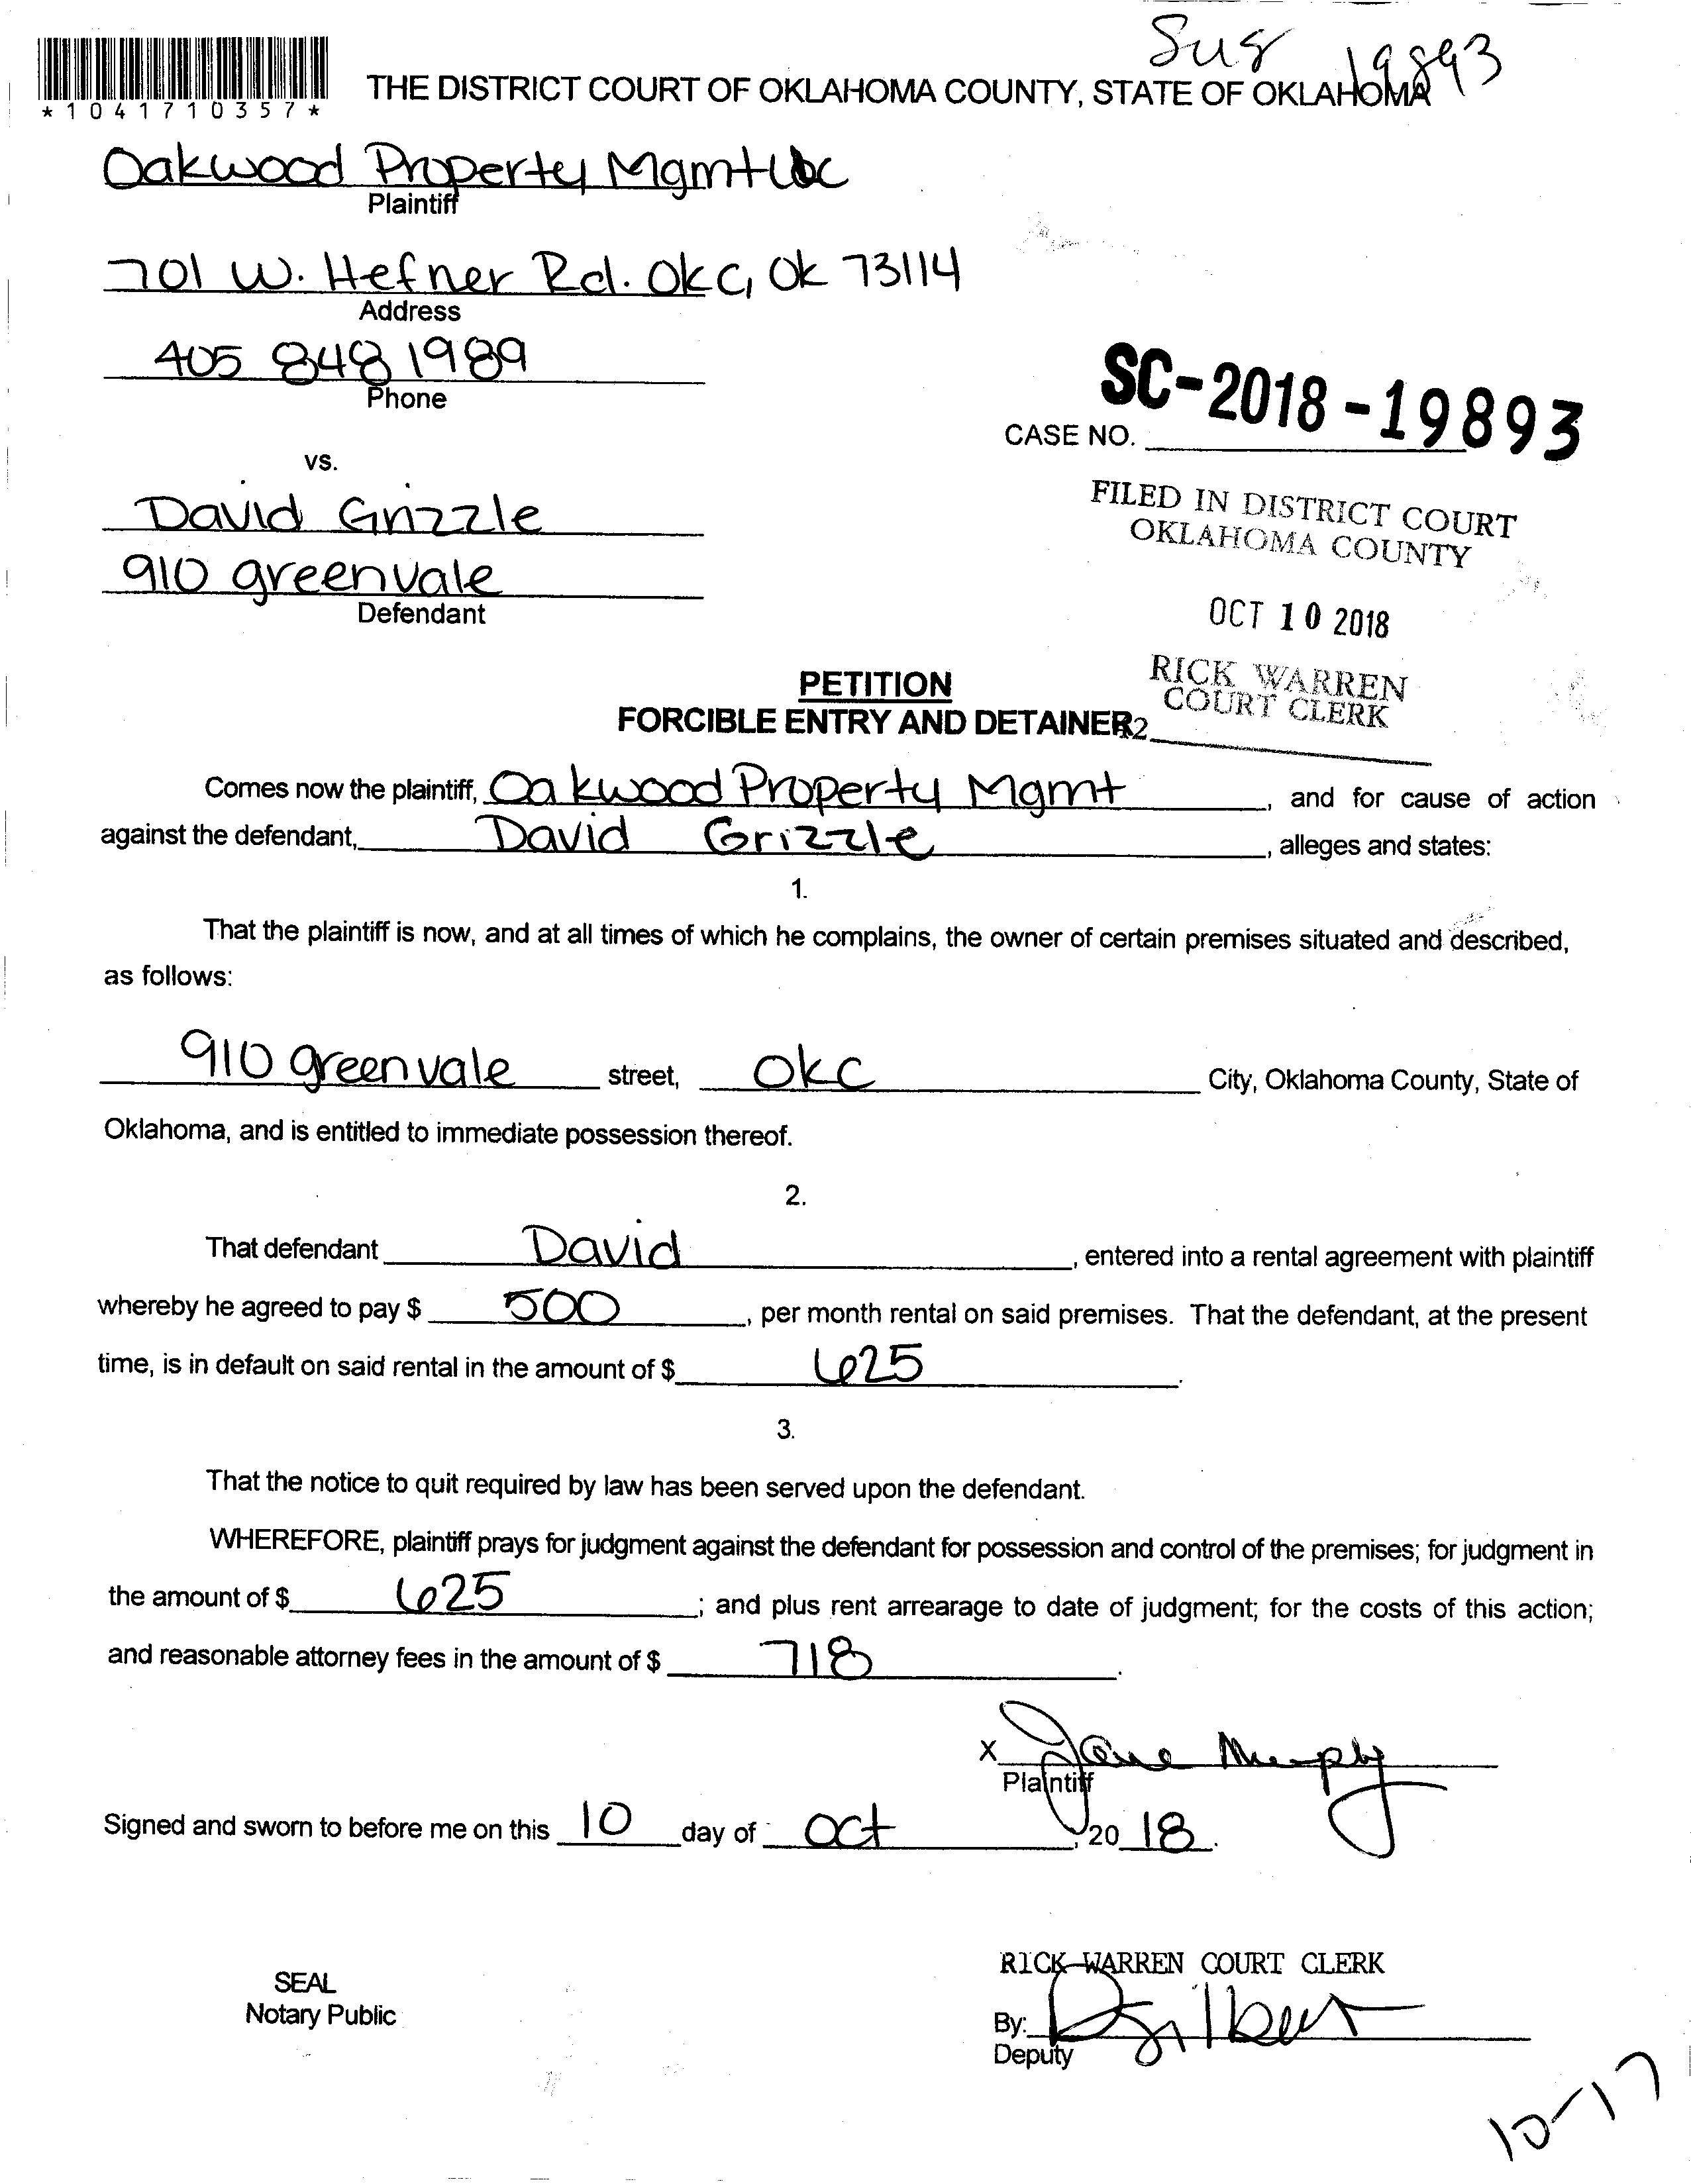 Sug 19893
*1041710357*
THE DISTRICT COURT OF OKLAHOMA COUNTY, STATE OF OKLAHOMA
Oakwood Property Mgmt
Plaintiff
701 W. Hefner Rd. OKC, OK 73114
Address
405 848 1989
Phone
SC-2018-19893
CASE NO.
vs.
David Grizzle
910 greenvale
Defendant
FILED IN DISTRICT COURT
OKLAHOMA COUNTY
OCT 10 2018
RICK WARREN
COURT CLERK
PETITION
FORCIBLE ENTRY AND DETAINER
Comes now the plaintiff, Oakwood Property Mgmt, and for cause of action
against the defendant, David Grizzle, alleges and states:
1.
That the plaintiff is now, and at all times of which he complains, the owner of certain premises situated and described,
as follows:
910 greenvale street, OKC City, Oklahoma County, State of
Oklahoma, and is entitled to immediate possession thereof.
2.
That defendant David, entered into a rental agreement with plaintiff
whereby he agreed to pay $ 500, per month rental on said premises. That the defendant, at the present
time, is in default on said rental in the amount of $ 625.
3.
That the notice to quit required by law has been served upon the defendant.
WHEREFORE, plaintiff prays for judgment against the defendant for possession and control of the premises; for judgment in
the amount of $ 625; and plus rent arrearage to date of judgment; for the costs of this action;
and reasonable attorney fees in the amount of $ 718.
X Jane Murphy
Plaintiff
Signed and sworn to before me on this 10 day of Oct, 20 18.
SEAL
Notary Public
RICK WARREN COURT CLERK
By:
Deputy
10-17